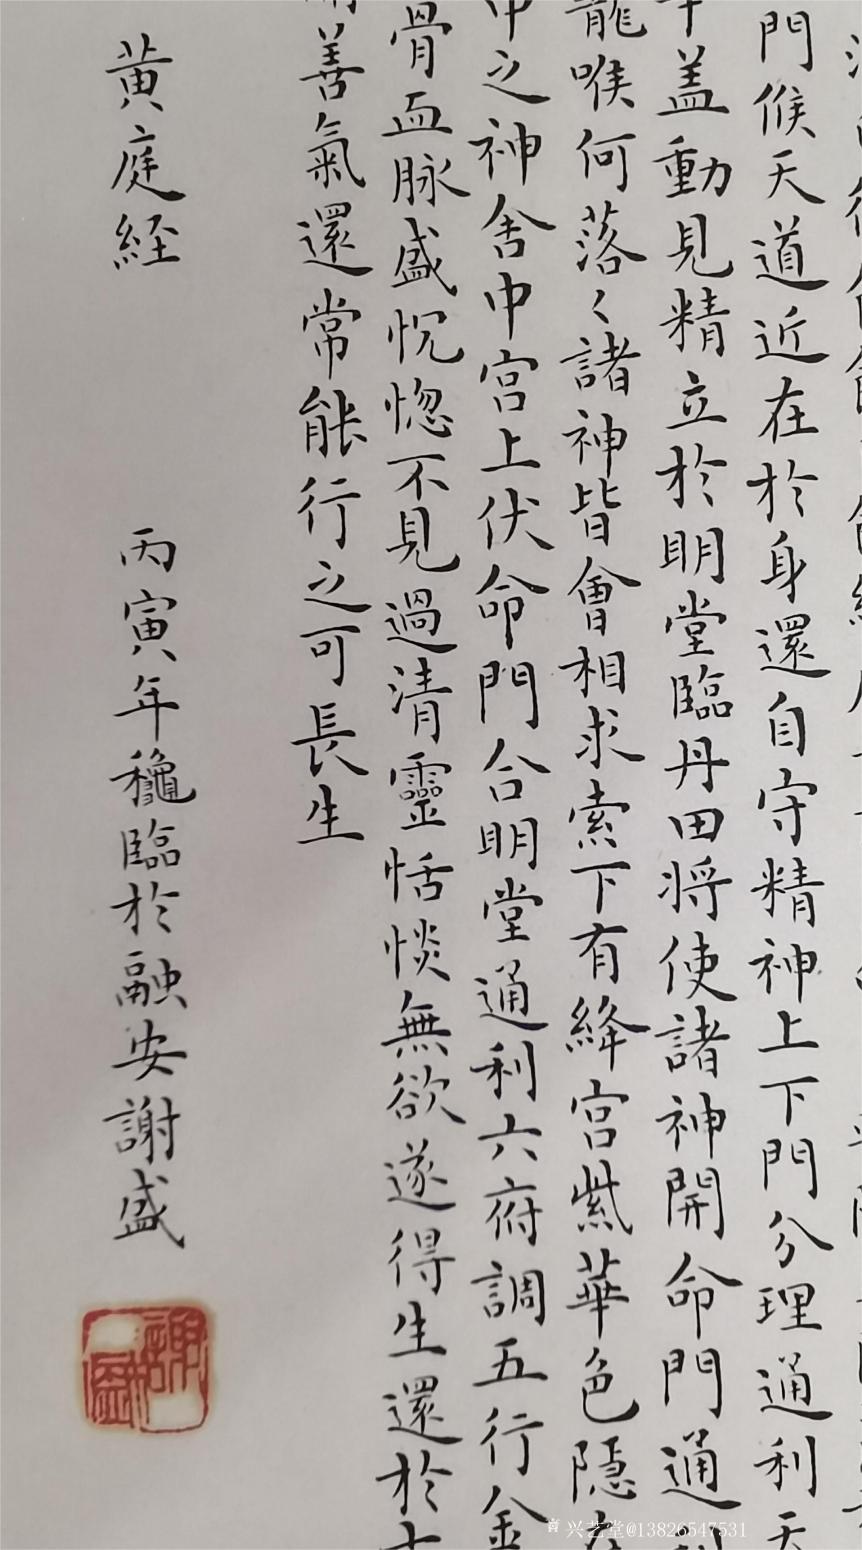 門候天道近在於身還自守精神上下門分理通利天
蓋動見精立於明堂臨丹田将使諸神開命門通
龍喉何落々諸神皆會相求索下有絳宮紫華色隱
中之神舍中宮上伏命門合明堂通利六府調五行金
骨血脉盛怳惚不見過清靈恬惔無欲遂得生還於
善氣還常能行之可長生
黄庭経
丙寅年龝臨於融安謝盛
謝盛
兴艺堂@13826547531